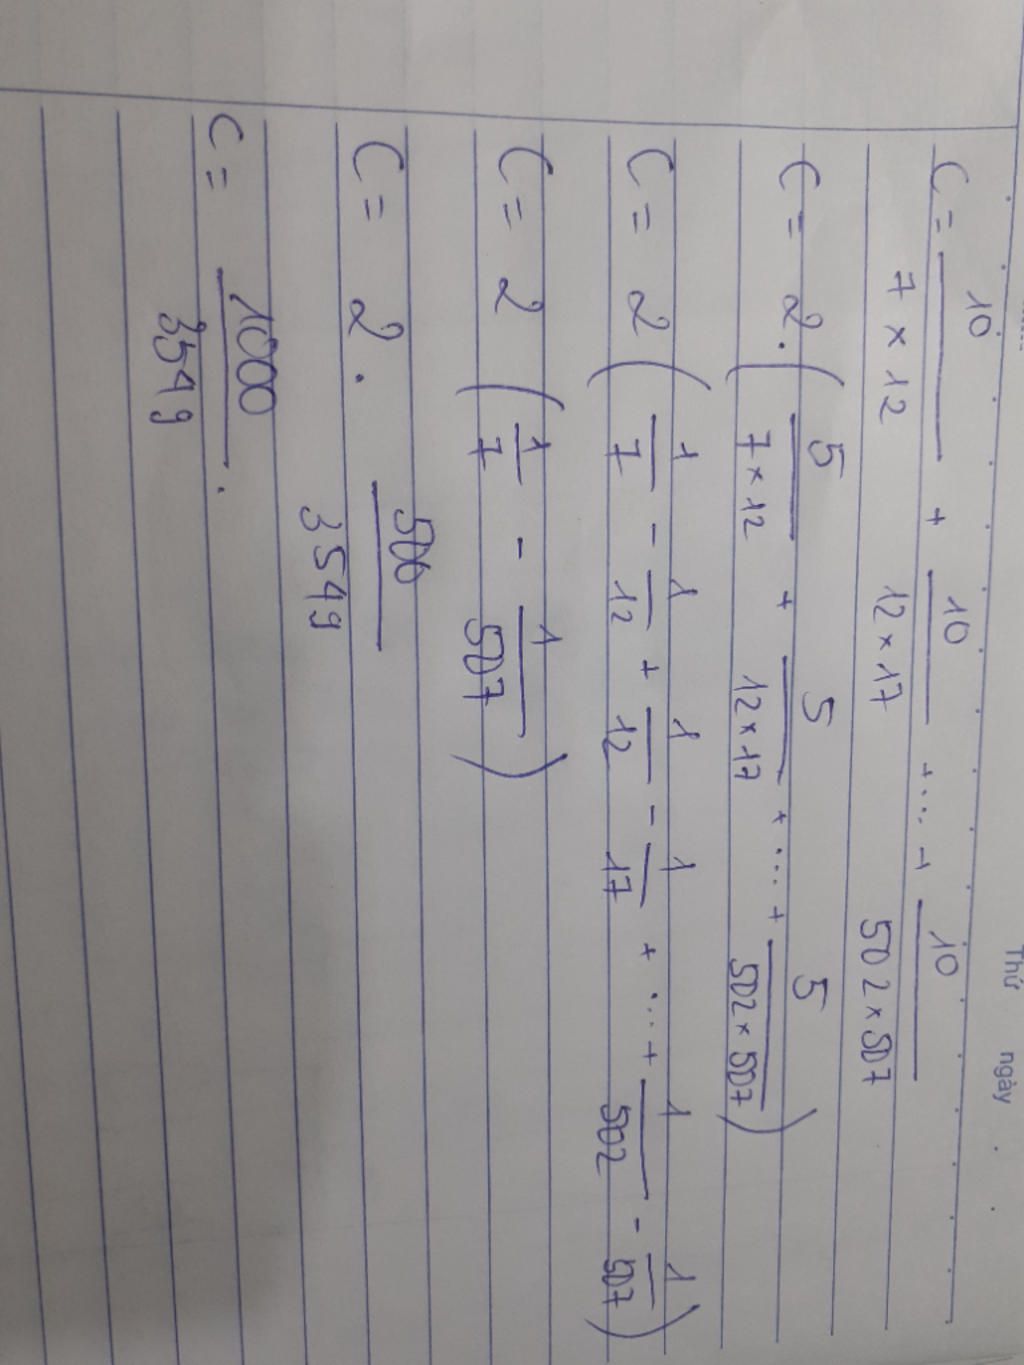 Thứ ngày
C = 10/(7 × 12) + 10/(12 × 17) + ... + 10/(502 × 507)
C = 2. ( 5/(7 × 12) + 5/(12 × 17) + ... + 5/(502 × 507) )
C = 2 ( 1/7 - 1/12 + 1/12 - 1/17 + ... + 1/502 - 1/507 )
C = 2 ( 1/7 - 1/507 )
C = 2 . 500/3549
C = 1000/3549 .